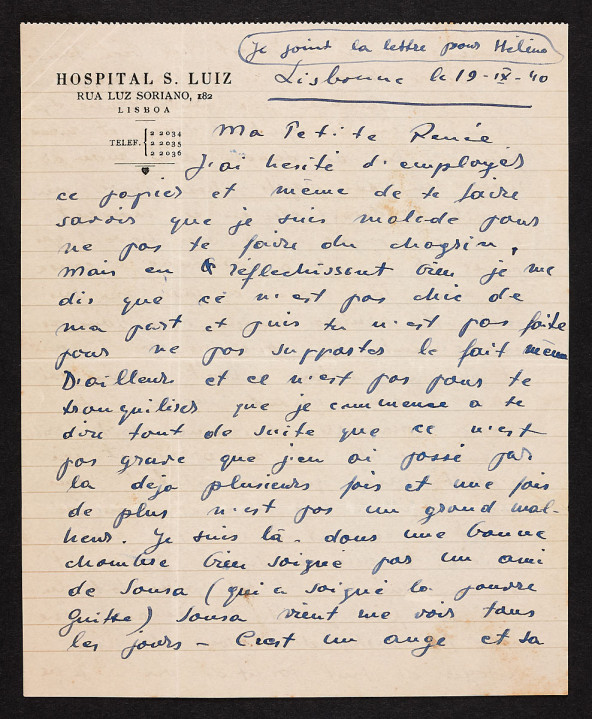 Je joint la lettre pour Hélène
HOSPITAL S. LUIZ
RUA LUZ SORIANO, 182
LISBOA
Lisbonne le 19-IX-40
TELEF. { 2 2034
2 2035
2 2036
Ma Petite Renée
J'ai hesité d'employer
ce papier et même de te faire
savoir que je suis malade pour
ne pas te faire du chagrin,
mais en reflechissent bien je me
dis que ce n'est pas chic de
ma part et puis tu n'est pas faite
pour ne pas supporter le fait même
D'ailleurs et ce n'est pas pour te
tranquiliser que je commence a te
dire tout de suite que ce n'est
pas grave que j'en ai passé par
la déjà plusieurs fois et une fois
de plus n'est pas un grand mal-
heur. Je suis là - dans une bonne
chambre bien soigné par un ami
de Sousa (qui a soigné la pauvre
Guitte) Sousa vient me voir tous
les jours - C'est un ange et sa